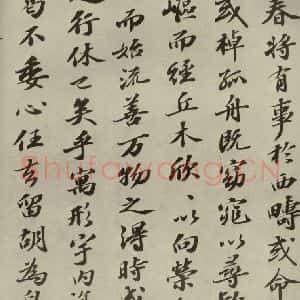 春將有事於西疇或命
或棹孤舟既窈窕以尋
嶇而經丘木欣〻以向榮
而始流善万物之得時
行休已矣乎寓形宇内
曷不委心任去留胡為
Shufawang.CN